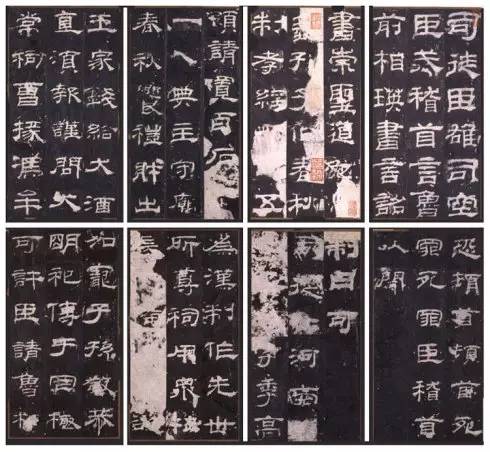 司徒臣雄司空
臣戒稽首言魯
前相瑛書言詔
書崇聖道勉
藝孔子作春秋
制孝經 五
須請置百石
一人典主守廟
春秋饗禮財出
王家錢給大酒
直須報謹問大
常祠曹掾馮牟
恐頓首頓首死
罪死罪臣稽首
以聞
制曰可
河南
字季高
為漢制作先世
所尊祠用眾牲
長 備
加寵子孫敬恭
明祀傳于罔極
可許臣請魯相